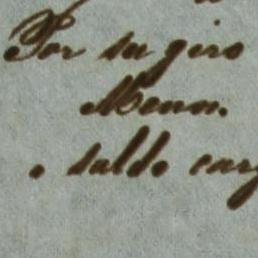 Por su giro
Menn.
" saldo carg